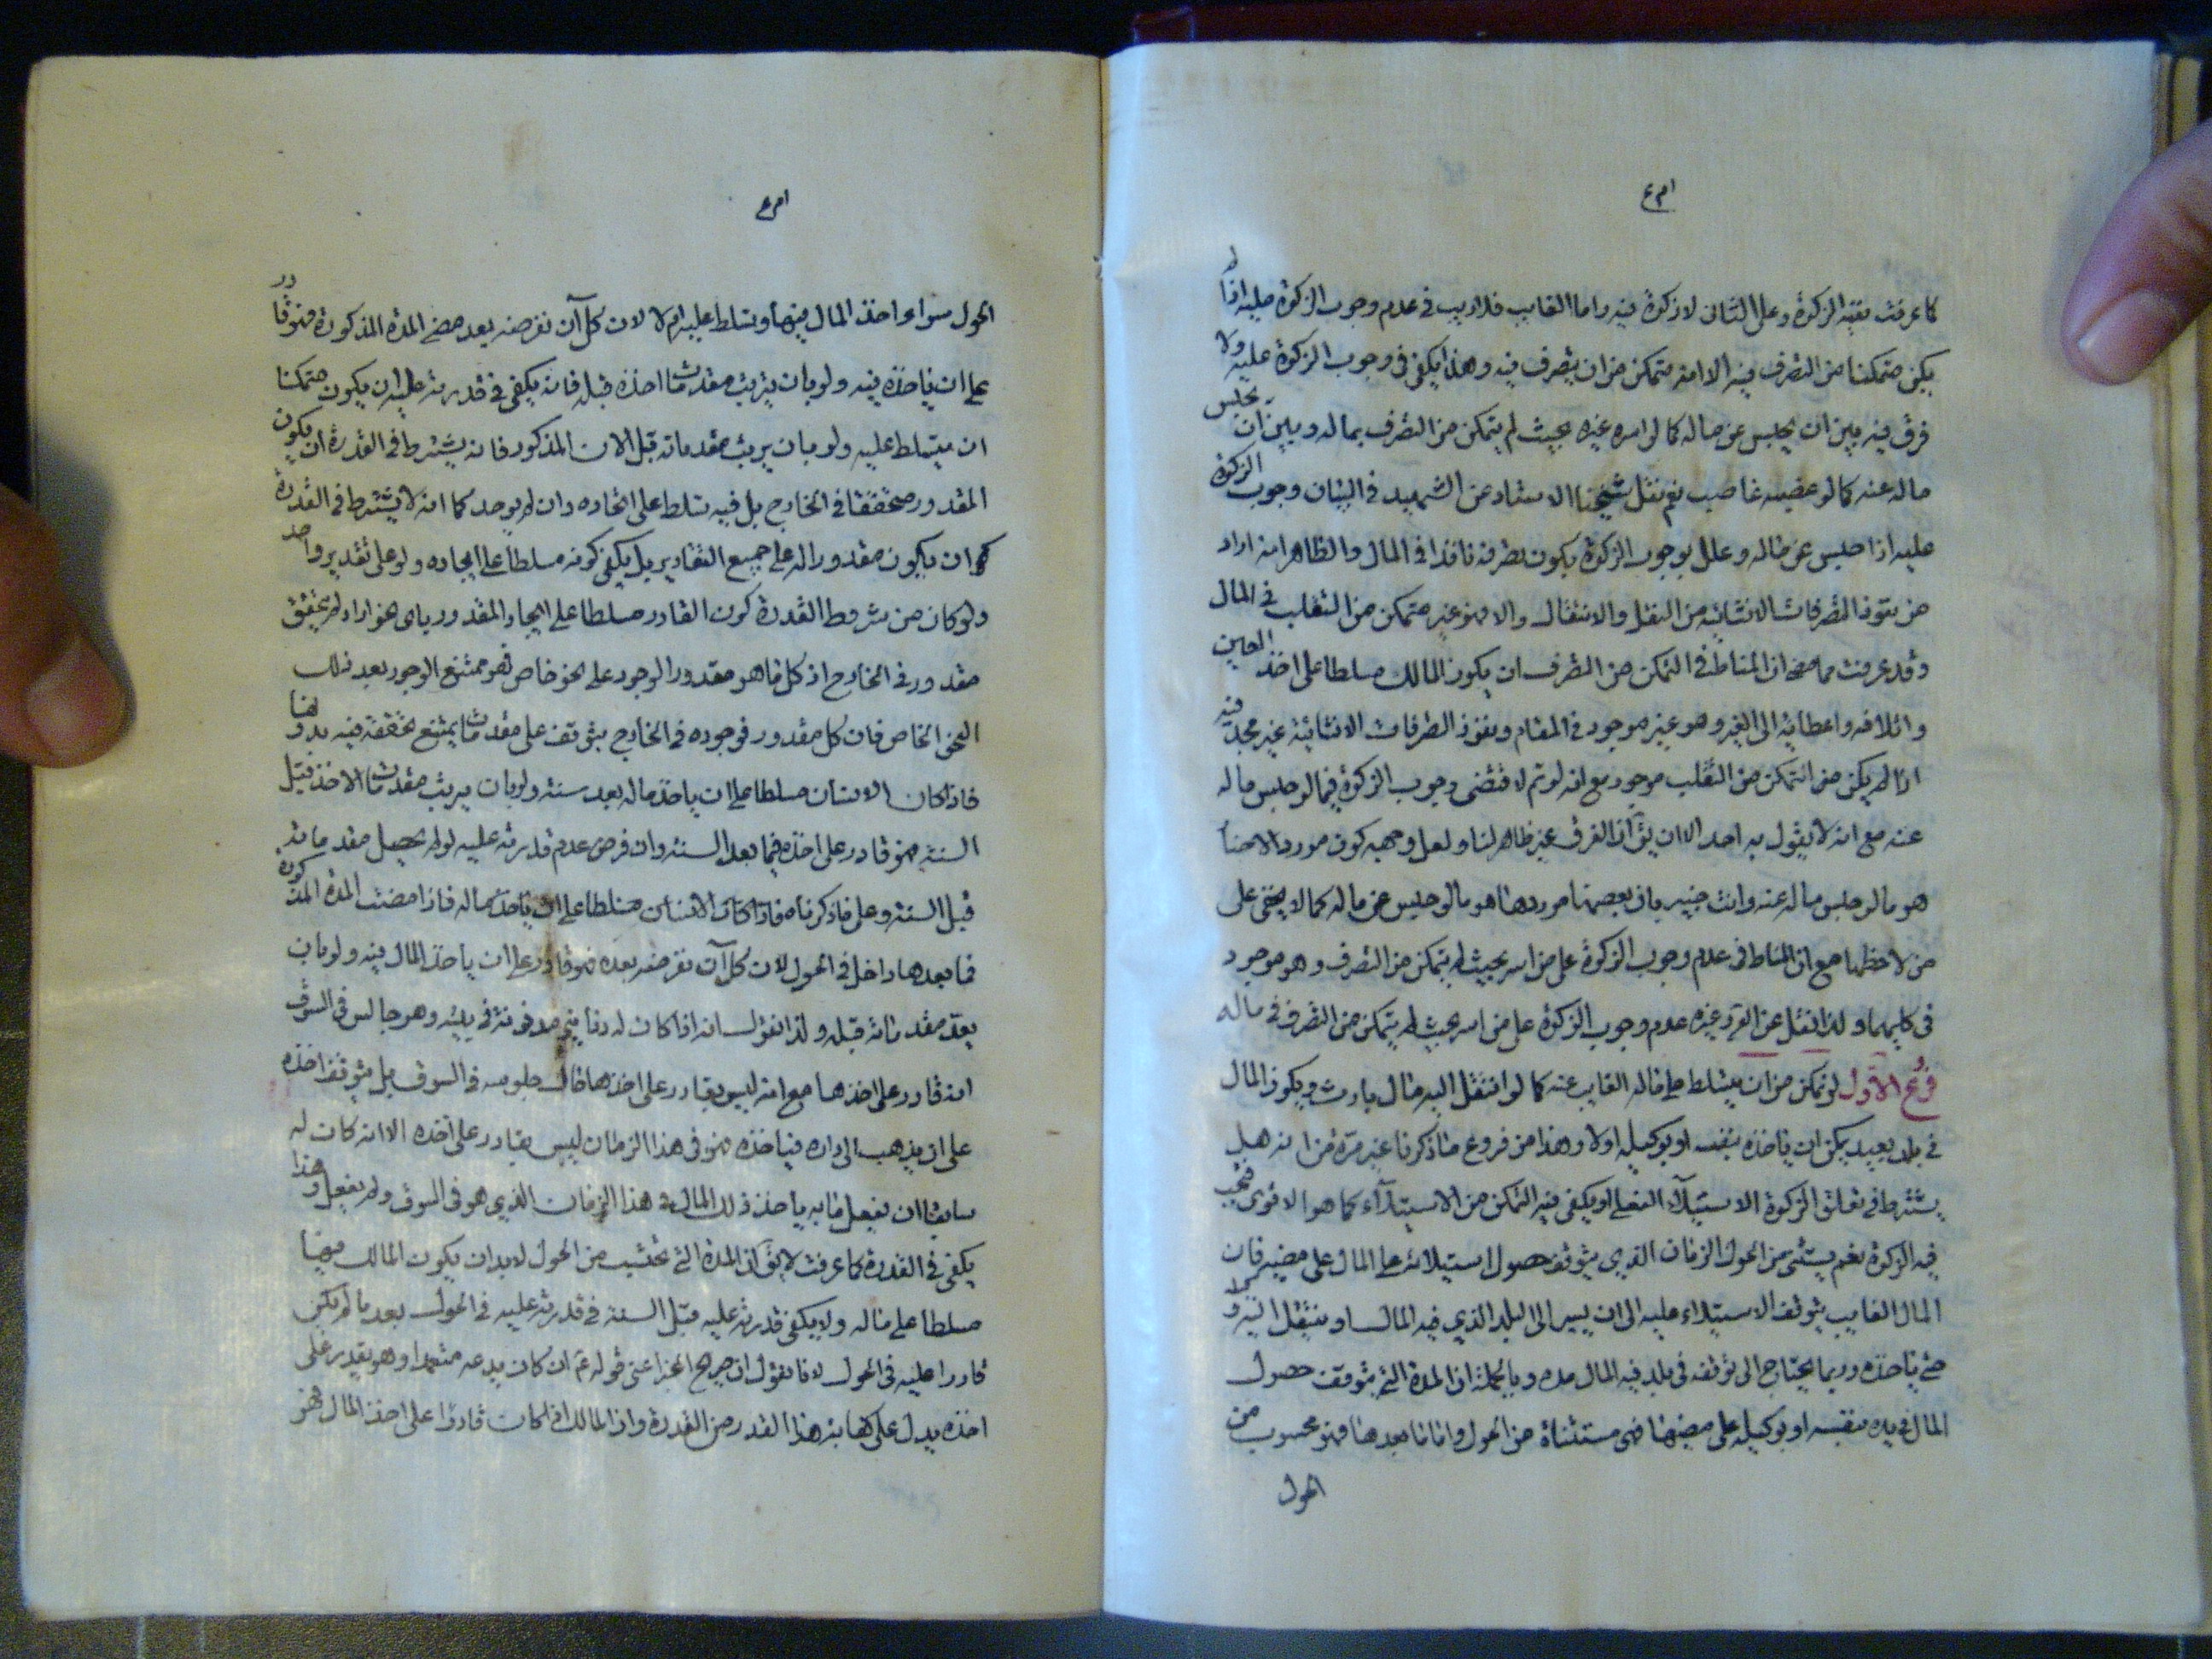 كما عرفت نفيه الزكوة وعلى الثانى لا زكوة فيه واما الغايب فلا ريب فى عدم وجوب الزكوة عليه اذا لم
يكن متمكنا من التصرف فيه الا انه متمكن من ان يتصرف فيه وهذا يكفى فى وجوب الزكوة عليه ولا
فرق فيه بين ان يحبس عن ماله كما لو اسره غيره بحيث لم يتمكن من التصرف بماله وبين ان يحبس
ماله عنه كما لو غصبه غاصب نعم نقل شيخنا الاستاد عن الشهيد فى البيان وجوب الزكوة
عليه اذا حبس عن ماله وعلل بوجوب الزكوة بكون تصرفه نافذا فى المال والظاهر انه اراد
من نفوذ التصرفات الانشائيه من النقل والانتقال والا فهو غير متمكن من التقلب فى المال
وقد عرفت مما مضى ان المناط فى التمكن من التصرف ان يكون المالك مسلطا على اخذ العين
واتلافه واعطائه الى الغير وهو غير موجود فى المقام ونفوذ التصرفات الانشائية غير مجد فيه
اذا لم يكن من التمكن من التقلب موجود مع انه لو تم لاقتضى وجوب الزكوة فيما لو حبس ماله
عنه مع انه لا يقول به احد الا ان يق ان الفرق غير ظاهر لنا ولعل وجهه كون مورد الاخبار
هو ما لو حبس ماله عنه وانت خبير بان بعضها موردها هو ما لو حبس عن ماله كما لا يخفى على
من لاحظها مع ان المناط فى عدم وجوب الزكوة على من اسر بحيث لم يتمكن من التصرف وهو موجود
فى كليهما ولذا نقل عن غيره عدم وجوب الزكوة على من اسر بحيث لم يتمكن من التصرف فى ماله
فروع الاول لو تمكن من ان يتسلط على ماله الغايب عنه كما لو انتقل اليه مال بارث ويكون المال
فى بلد بعيد يمكن ان ياخذه بنفسه او بوكيله اولا وهذا من فروع ما ذكرنا غير مرة من انه هل
يشترط فى تعلق الزكوة الاستيلاء الفعلى او يكفى فيه التمكن من الاستيلاء كما هو الاقوى فتجب
فيه الزكوة نعم يستثنى من الحول الزمان الذي يتوقف حصول استيلائه على المال على مضيه فان
المال الغايب يتوقف الاستيلاء عليه الى ان يسير الى البلد الذي فيه المال او ينتقل اليه
حتى ياخذه وربما يحتاج الى توقفه فى بلد فيه المال مدة وبالجملة ان المدة التي يتوقف حصول
المال فى يده بنفسه او بوكيله على مضيها فهى مستثناة من الحول واما ما بعدها فهو محسوب من
الحول
الحول سواء اخذ المال فيها وتسلط عليه ام لا لان كل آن نفرضه بعد مضى المدة المذكورة فهو قادر
على ان ياخذه فيه ولو بان يرتب مقدمات اخذه قبله فانه يكفى فى قدرته عليه ان يكون متمكنا
ان يتسلط عليه ولو بان يرتب مقدماته قبل الان المذكور فانه يشترط فى القدرة ان يكون
المقدور متحققا فى الخارج بل فيه تسلط على اتخاذه وان لم يوجد كما انه لا يشترط فى القدرة
ان يكون مقدورا له على جميع التقادير بل يكفى كونه مسلطا على ايجاده ولو على تقدير واحد
ولو كان من شروط القدرة كون القادر مسلطا على ايجاد المقدور باى نحو اراد لم يتحقق
مقدور فى الخارج اذ كل ما هو مقدور الوجود على نحو خاص فهو ممتنع الوجود بعد ذلك
النحو الخاص فان كل مقدور فوجوده فى الخارج يتوقف على مقدمات يمتنع تحققه فيه بدونها
فاذا كان الانسان مسلطا على ان ياخذ ماله بعد سنة ولو بان يرتب مقدمات الاخذ قبل
السنة فهو قادر على اخذه فيما بعد السنة وان فرض عدم قدرته عليه لو لم يحصل مقدماته
قبل السنة وعلى ما ذكرناه فاذا كان الانسان متسلطا على ان ياخذ ماله فاذا مضت المدة المذكورة
فما بعدها داخل فى الحول لان كل آن نفرضه بعده فهو قادر على ان ياخذ المال فيه ولو بان
يعد مقدماته قبله ولذا نقول انه اذا كان له دنانير مدفونة فى بيته وهو جالس فى السوق
انه قادر على اخذها مع انه ليس بقادر على اخذها حال جلوسه فى السوق بل يتوقف اخذه
على ان يذهب الى داره فياخذه فهو فى هذا الزمان ليس بقادر على اخذه الا انه كان له
سابقا ان يفعل ما به ياخذ ذلك المال فى هذا الزمان الذي هو فى السوق ولم يفعل وهذا
يكفى فى القدرة كما عرفت لا يق ان المدة التى تحتسب من الحول لا بد ان يكون المالك فيها
مسلطا على ماله ولا يكفى قدرته عليه قبل السنة فى قدرته عليه فى الحول بعد ما لم يكن
قادرا عليه فى الحول لانا نقول ان صريح الخبر اعنى قوله ع ان كان يدعه متعمدا وهو يقدر على
اخذه يدل على كفاية هذا القدر من القدرة واذ المالك اذا كان قادرا على اخذ المال فهو